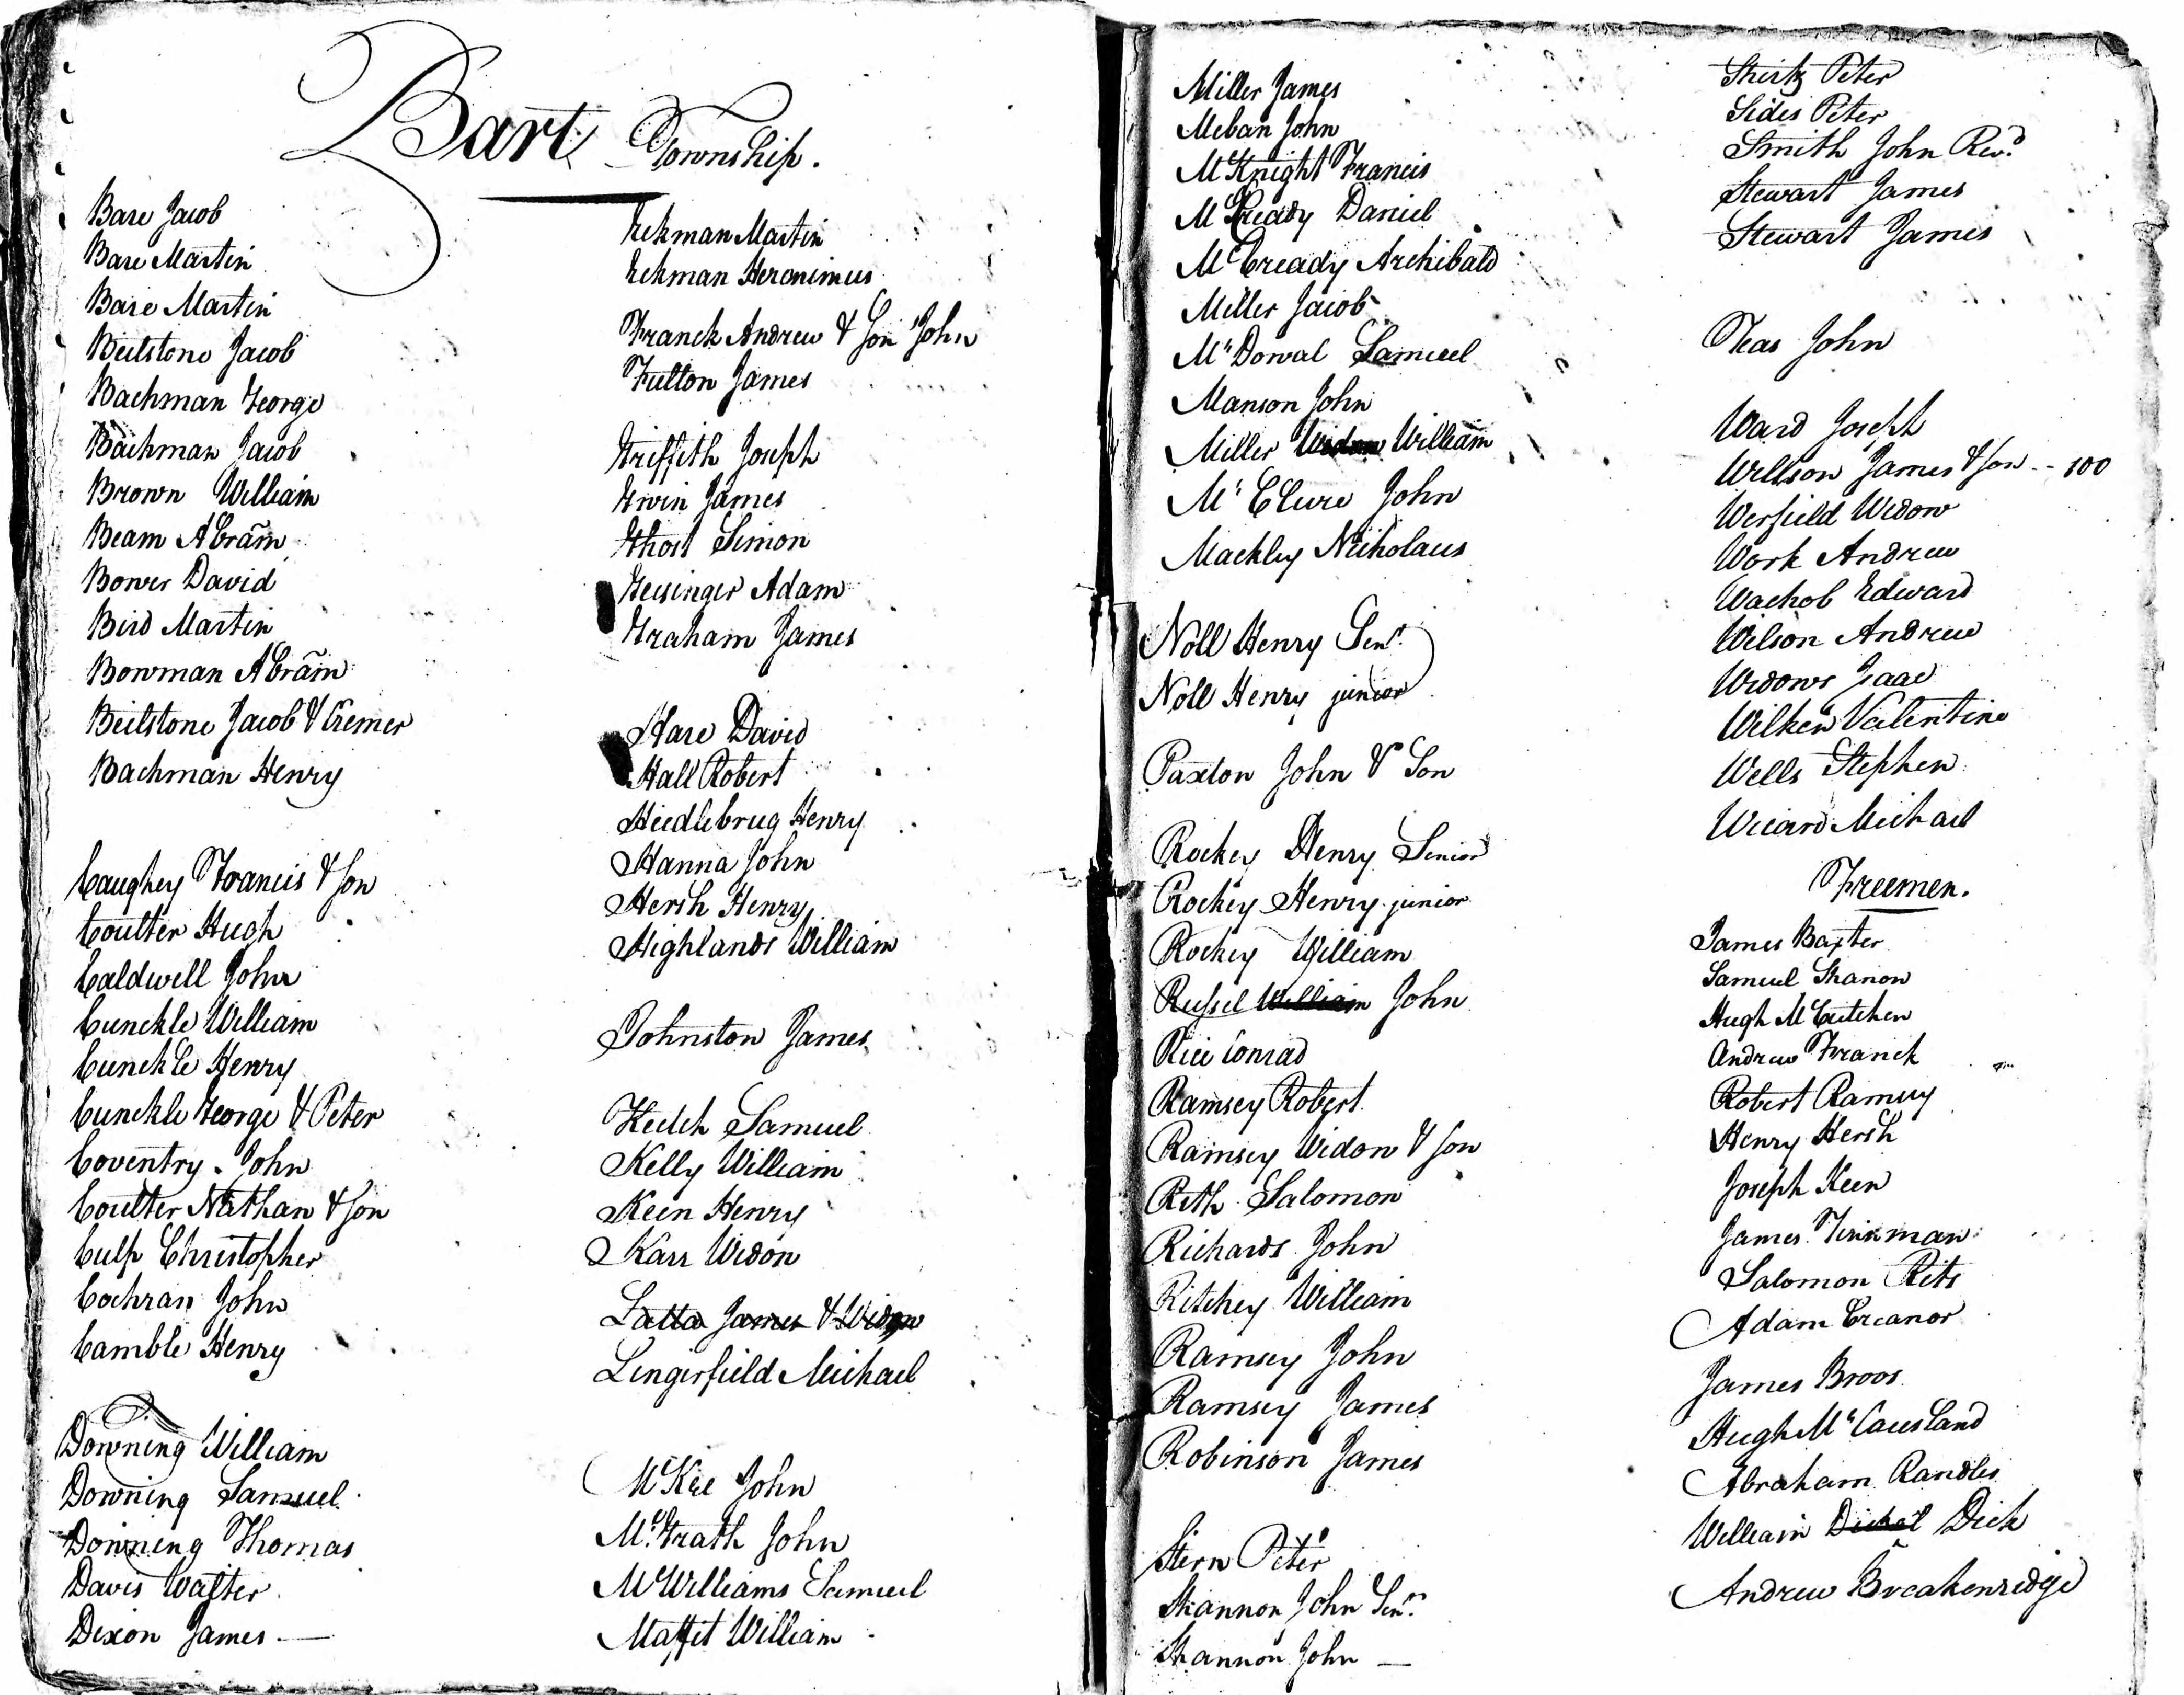 Bart Township.
Bare Jacob
Bare Martin
Bare Martin
Beilstone Jacob
Bachman George
Bachman Jacob
Brown William
Beam Abram
Bower David
Bird Martin
Bowman Abram
Beilstone Jacob & Cremer
Bachman Henry
Caughey Francis & Son
Coulter Hugh
Caldwell John
Cunckle William
Cunckle Henry
Cunckle George & Peter
Coventry John
Coulter Nathan & Son
Culp Christopher
Cochran John
Camble Henry
Downing William
Downing Samuel
Downing Thomas
Davis Walter
Dixon James
Eckman Martin
Eckman Heronimus
Franck Andrew & Son John
Fulton James
Griffith Joseph
Irwin James
Ghost Simon
Geisinger Adam
Graham James
Hare David
Hall Robert
Heidlebrug Henry
Hanna John
Hersh Henry
Highlands William
Johnston James
Keech Samuel
Kelly William
Keen Henry
Karr Widow
Latta James & Widow
Lingerfield Michael
McKee John
Mc.Grath John
McWilliams Samuel
Maffit William
Miller James
Meban John
McKnight Francis
McCready Daniel
McCready Archibald
Miller Jacob
McDowal Samuel
Manson John
Miller Widow William
McClure John
Mackley Nicholaus
Noll Henry Senr.
Noll Henry junior
Paxton John & Son
Rockey Henry Senior
Rockey Henry junior
Rockey William
Russel William John
Rice Conrad
Ramsey Robert
Ramsey Widow & Son
Rith Salomon
Richards John
Ritchey William
Ramsey John
Ramsey James
Robinson James
Stern Peter
Shannon John Senr.
Shannon John
Shirtz Peter
Sides Peter
Smith John Revd.
Stewart James
Stewart James
Teas John
Ward Joseph
Willson James & Son -- 100
Werfield Widow
Work Andrew
Wachob Edward
Wilson Andrew
Widows Isaac
Wilken Valentine
Wells Stephen
Wicard Michael
Freemen.
James Baxter
Samuel Shanon
Hugh McCutchen
Andrew Franck
Robert Ramsey
Henry Hersh
Joseph Keen
James
Salomon Rits
Adam Creanor
James Broos
Hugh McCausland
Abraham Randles
William Dick
Andrew Breakenridge